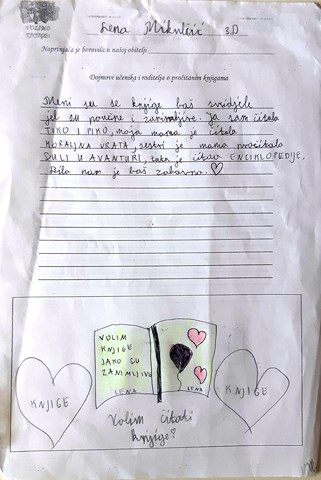 Lena 3.D
Naprtnjača je boravila u našoj obitelji
Dojmovi učenika i roditelja o pročitanim knjigama
Meni su se knjige baš svidjele
jel su poučne i zanimljive. Ja sam čitala
TIKO I PIKO, moja mama je čitala
VRATA, sestri je mama pročitala
U AVANTURI, tata je čitao ENCIKLOPEDIJE.
Bilo nam je baš zabavno.
VOLIM
KNJIGE
JAKO SU
ZANIMLJIVE
LENA
LENA
KNJIGE
KNJIGE
Volim čitati
knjige